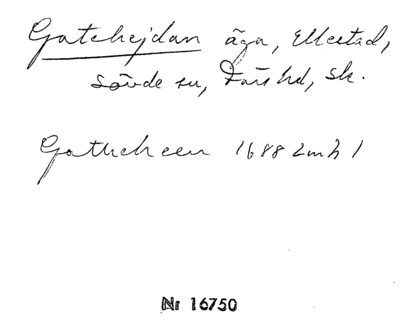 Gatehejdan äga, Ellestad,
Sövde sn, Färs hd, Sk.
Gatheheen 1688 Lmh 1
Nr 16750